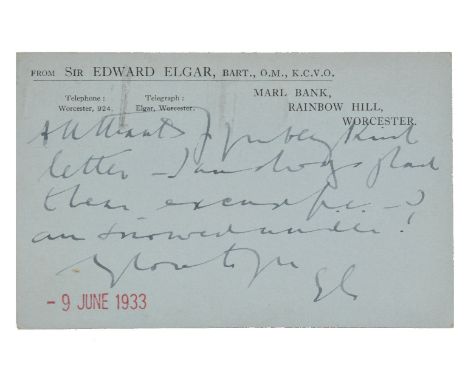 FROM SIR EDWARD ELGAR, BART., O.M., K.C.V.O.
Telephone:
Worcester, 924.
Telegraph:
Elgar, Worcester.
MARL BANK,
RAINBOW HILL,
WORCESTER.
All thanks for kind
letter - I am always glad
to hear excuse p.c. - I
am snowed under!
- 9 JUNE 1933